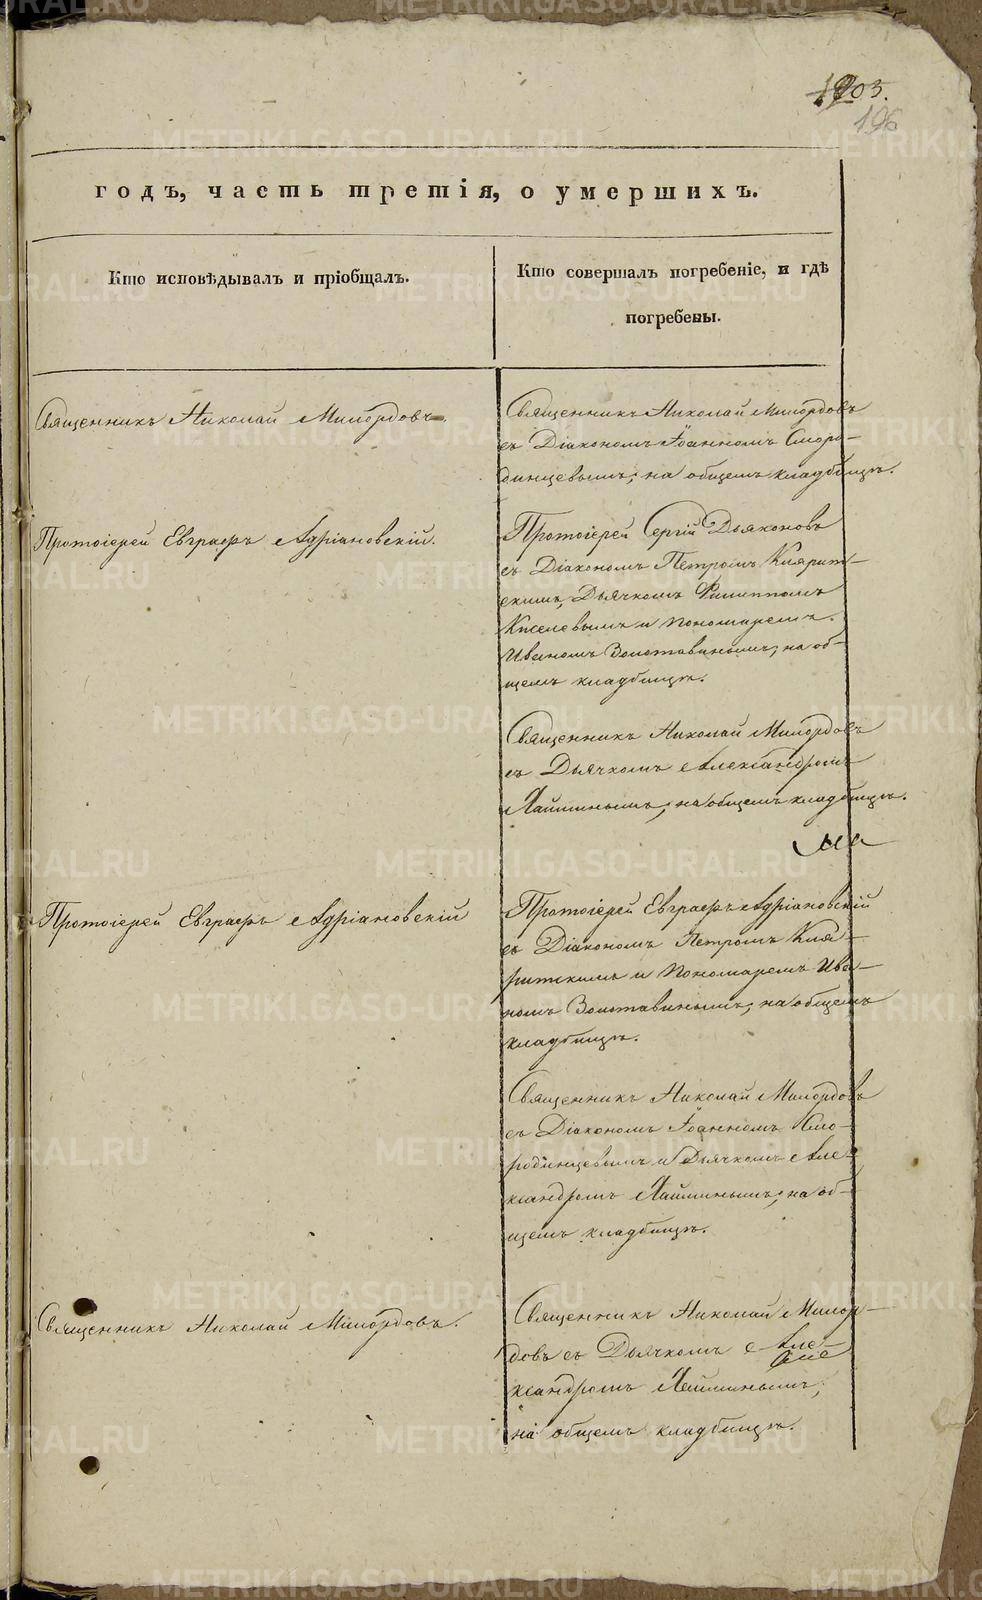 203.
196
годъ, часть третія, о умершихъ.
Кто исповѣдывалъ и пріобщалъ.
Кто совершалъ погребеніе, и гдѣ
погребены.
Священникъ Николай Милордовъ.
Священникъ Николай Милордовъ
съ Діакономъ Іоанномъ Сморо-
динцевымъ, на общемъ кладбищѣ.
Протоіерей Евграфъ Адріановскій.
Протоіерей Сергій Дьяконовъ
съ Діакономъ Петромъ
Дьячкомъ Филиппомъ
Киселевымъ и Пономаремъ
Иваномъ Золотавинымъ, на об-
щемъ кладбищѣ.
Священникъ Николай Милордовъ
съ Дьячкомъ Александромъ
на общемъ кладбищѣ.
Протоіерей Евграфъ Адріановскій
Протоіерей Евграфъ Адріановскій
съ Діакономъ Петромъ
и Пономаремъ Ива-
номъ Золотавинымъ, на общемъ
кладбищѣ.
Священникъ Николай Милордовъ
съ Діакономъ Іоанномъ Смо-
родинцевымъ и Дьячкомъ Але-
ксандромъ на об-
щемъ кладбищѣ.
Священникъ Николай Милордовъ.
Священникъ Николай Милор-
довъ съ Дьячкомъ Але-
ксандромъ
на общемъ кладбищѣ.
METRIKI.GASO-URAL.RU